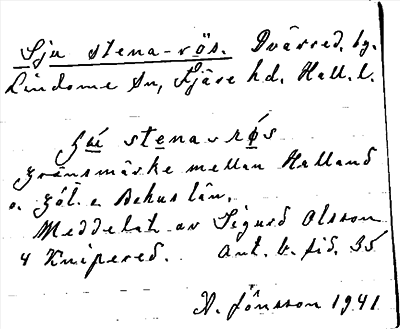 Sju stena-rös. Dvärred, by.
Lindome Sn, Fjäre hd. Hall. l.
stena-rós
gränsmärke mellan Halland
o. Göt. o. Bohus län.
Meddelat av Sigurd Olsson
4 Knipered. Ant. b. sid. 35
N. Jönsson 1941